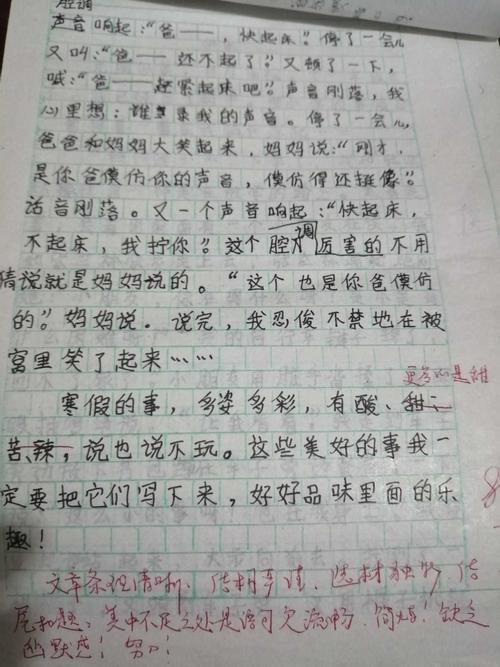 腔调
声音响起：“爸——，快起床”停了一会儿
又叫：“爸——还不起了”又顿了一下，
喊：“爸——赶紧起床吧”声音刚落，我
心里想：谁录我的声音。停了一会儿，
爸爸和妈妈大笑起来，妈妈说：“刚才，
是你爸模仿你的声音，模仿得还挺像”
话音刚落。又一个声音响起：“快起床，
不起床，我拧你”这个腔调厉害的不用
猜说就是妈妈说的。“这个也是你爸模仿
的”妈妈说。说完，我忍俊不禁地在被
窝里笑了起来……
更多的是甜
寒假的事，多姿多彩，有酸、甜、
苦、辣，说也说不玩。这些美好的事我一
定要把它们写下来，好好品味里面的乐
趣！
文章条理清晰、选材独特
尾扣题，其中不足之处是语句欠流畅、简炼！缺乏
幽默感！努力！